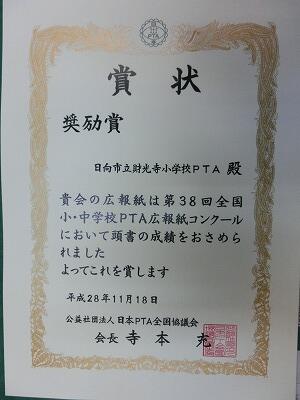 賞状
奨励賞
日向市立財光寺小学校PTA 殿
貴会の広報紙は第38回全国
小・中学校PTA広報紙コンクール
において頭書の成績をおさめら
れました
よってこれを賞します
平成28年11月18日
公益社団法人 日本PTA全国協議会
会長 寺本 充